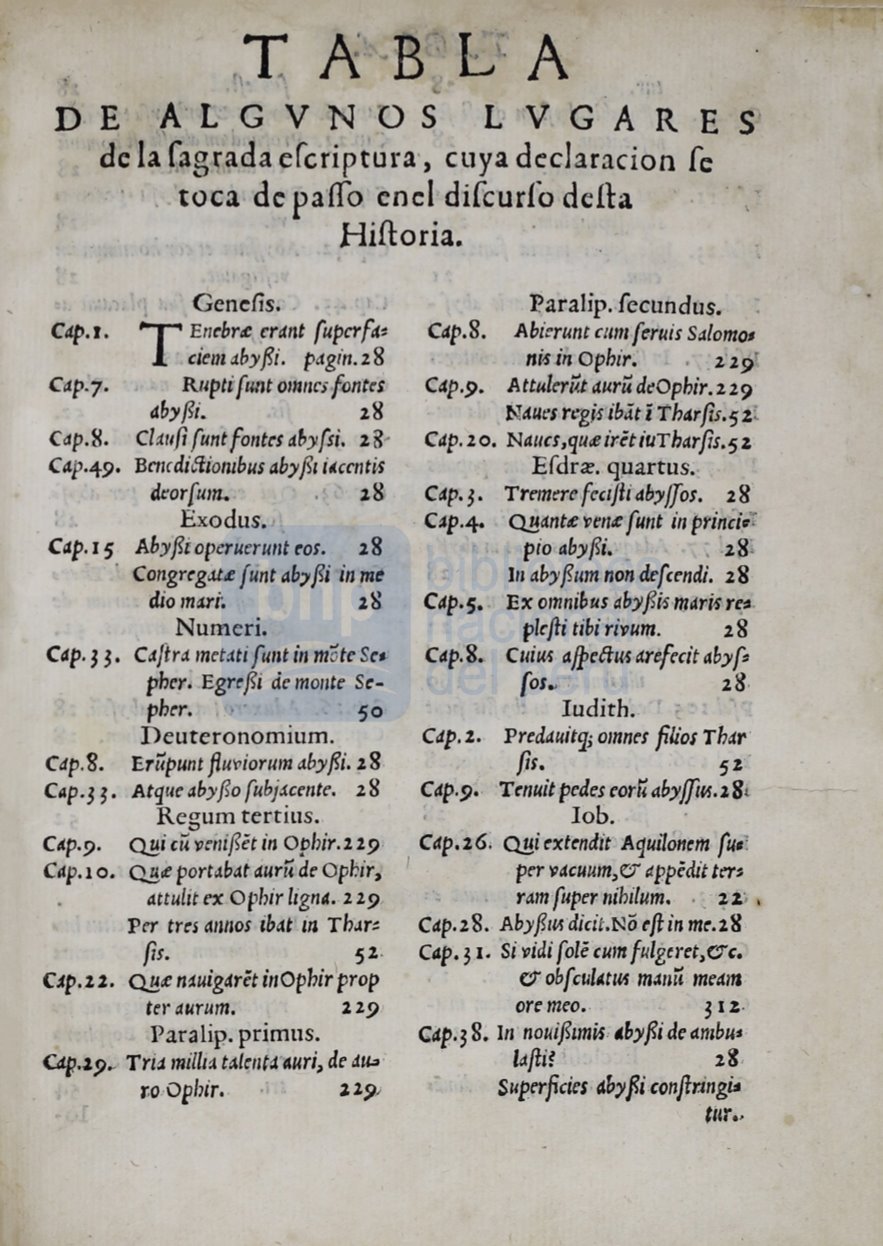 TABLA
DE ALGVNOS LVGARES
de la ſagrada eſcriptura, cuya declaracion ſe
toca de paſſo enel diſcurſo deſta
Hiſtoria.
Geneſis.
Cap.1. TEnebræ erant ſuperfa⸗
ciem abyßi. pagin.28
Cap.7. Rupti ſunt omnes fontes
abyßi. 28
Cap.8. Clauſi ſunt fontes abyſsi. 28
Cap.49. Benedictionibus abyßi iacentis
deorſum. 28
Exodus.
Cap.15 Abyßi operuerunt eos. 28
Congregatæ ſunt abyßi in me
dio mari. 28
Numeri.
Cap.33. Caſtra metati ſunt in mõte Se⸗
pher. Egreßi de monte Se-
pher. 50
Deuteronomium.
Cap.8. Erũpunt fluviorum abyßi. 28
Cap.33. Atque abyßo ſubjacente. 28
Regum tertius.
Cap.9. Qui cũ venißẽt in Ophir.229
Cap.10. Quæ portabat aurũ de Ophir,
attulit ex Ophir ligna. 229
Per tres annos ibat in Thar⸗
ſis. 52
Cap.22. Quæ nauigarẽt inOphir prop
ter aurum. 229
Paralip. primus.
Cap.29. Tria millia talenta auri, de au⸗
ro Ophir. 229
Paralip. ſecundus.
Cap.8. Abierunt cum ſeruis Salomo⸗
nis in Ophir. 229
Cap.9. Attulerũt aurũ deOphir.229
Naues regis ibãt ĩ Tharſis.52
Cap.20. Naues,quæ irẽt iuTharſis.52
Eſdræ. quartus.
Cap.3. Tremere feciſti abyſſos. 28
Cap.4. Quantæ venæ ſunt in princi⸗
pio abyßi. 28
In abyßum non deſcendi. 28
Cap.5. Ex omnibus abyßis maris re⸗
pleſti tibi rivum. 28
Cap.8. Cuius aſpectus arefecit abyſ⸗
ſos. 28
Iudith.
Cap.2. Predauitq; omnes filios Thar
ſis. 52
Cap.9. Tenuit pedes eorũ abyſſus.28
Iob.
Cap.26. Qui extendit Aquilonem ſu⸗
per vacuum,& appẽdit ter⸗
ram ſuper nihilum. 22
Cap.28. Abyßus dicit.Nõ eſt in me.28
Cap.31. Si vidi ſolẽ cum fulgeret,&c.
& obſculatus manũ meam
ore meo. 312
Cap.38. In nouißimis abyßi de ambu⸗
laſti? 28
Superficies abyßi conſtringi⸗
tur.